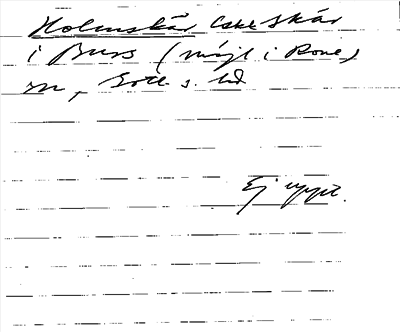 Holmskär (ske skär
i Burs (möjl i Rone)
sn, Gotl s. hd
Ej uppt.